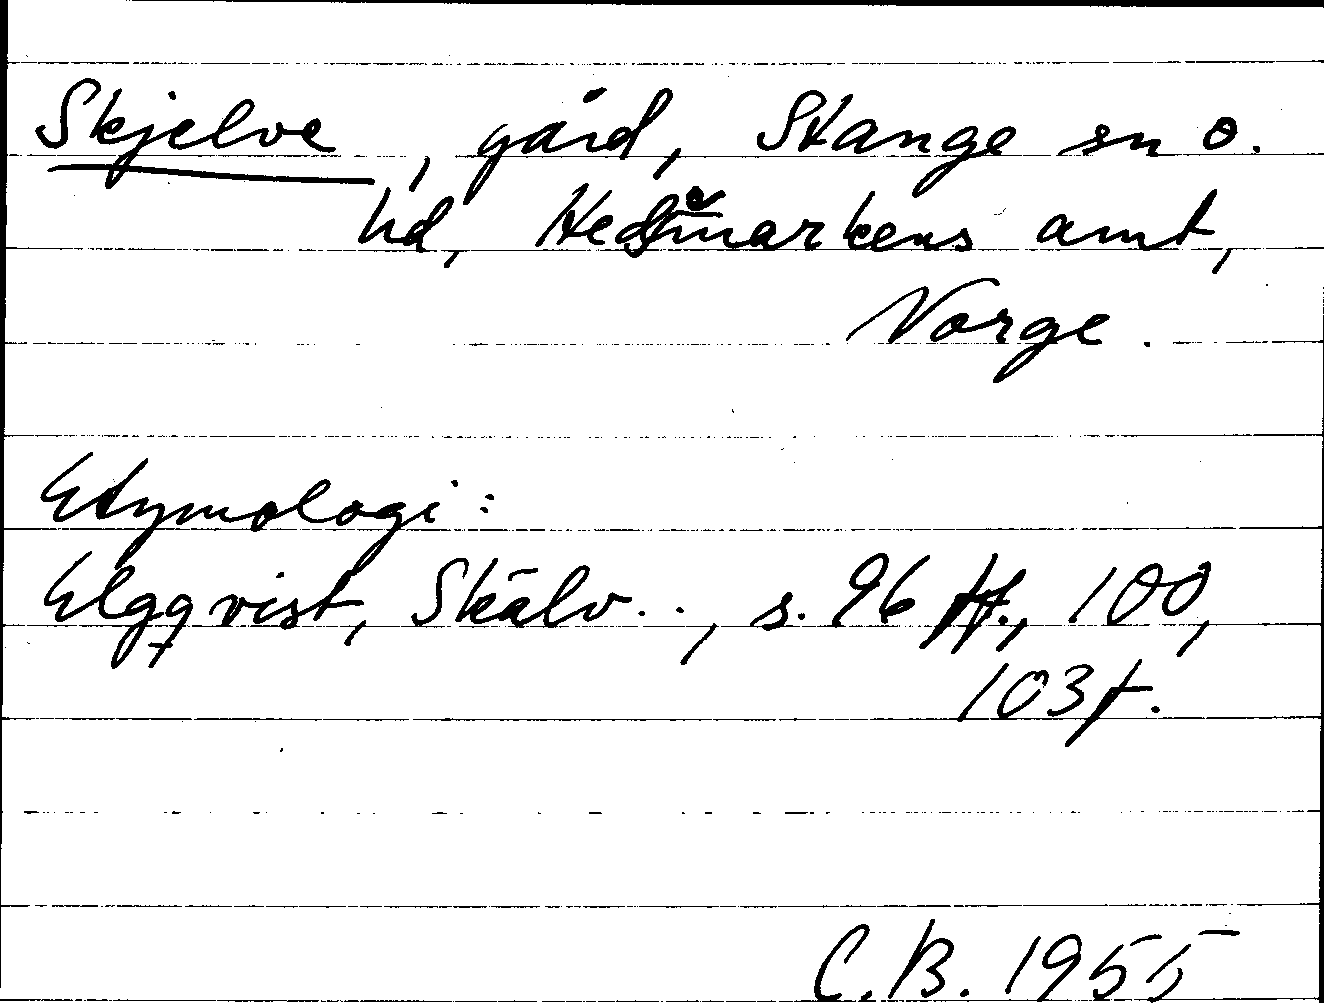 Skjelve, gård, Stange sn o.
hd, Hedemarkens amt,
Norge.
Etymologi:
Elgqvist, Skälv.., s. 96 ff., 100,
103f.
C.B. 1955